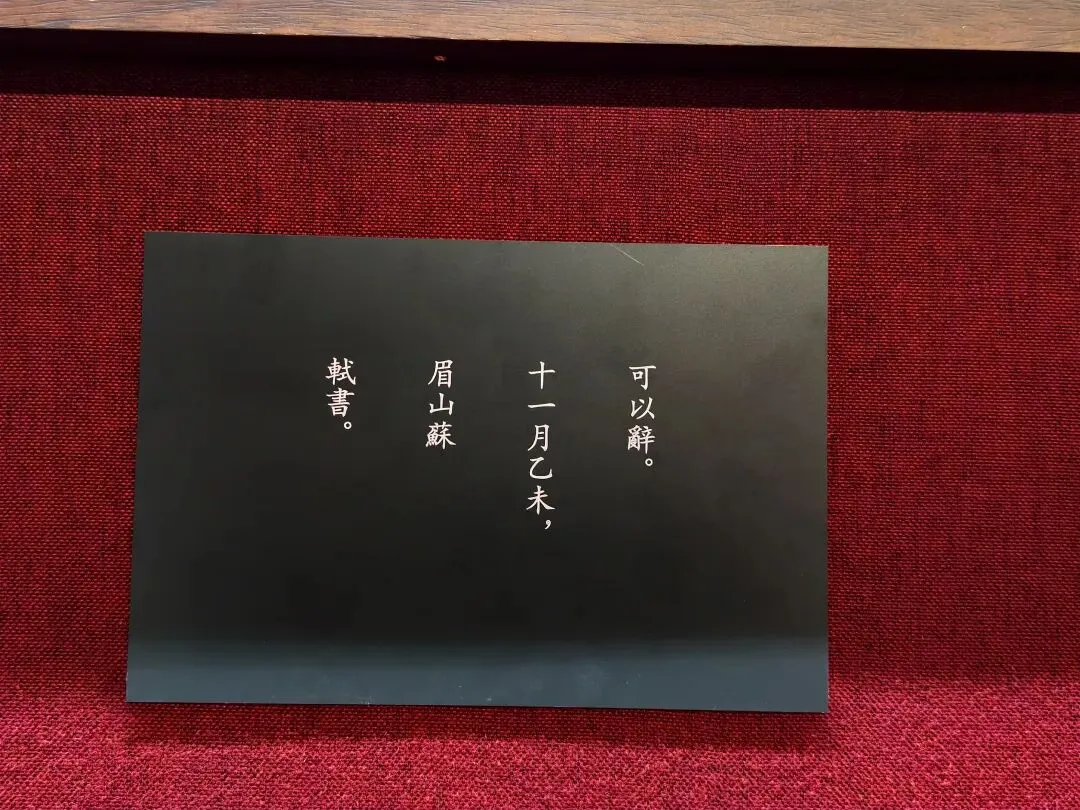 可以辭。
十一月乙未，
眉山蘇
軾書。